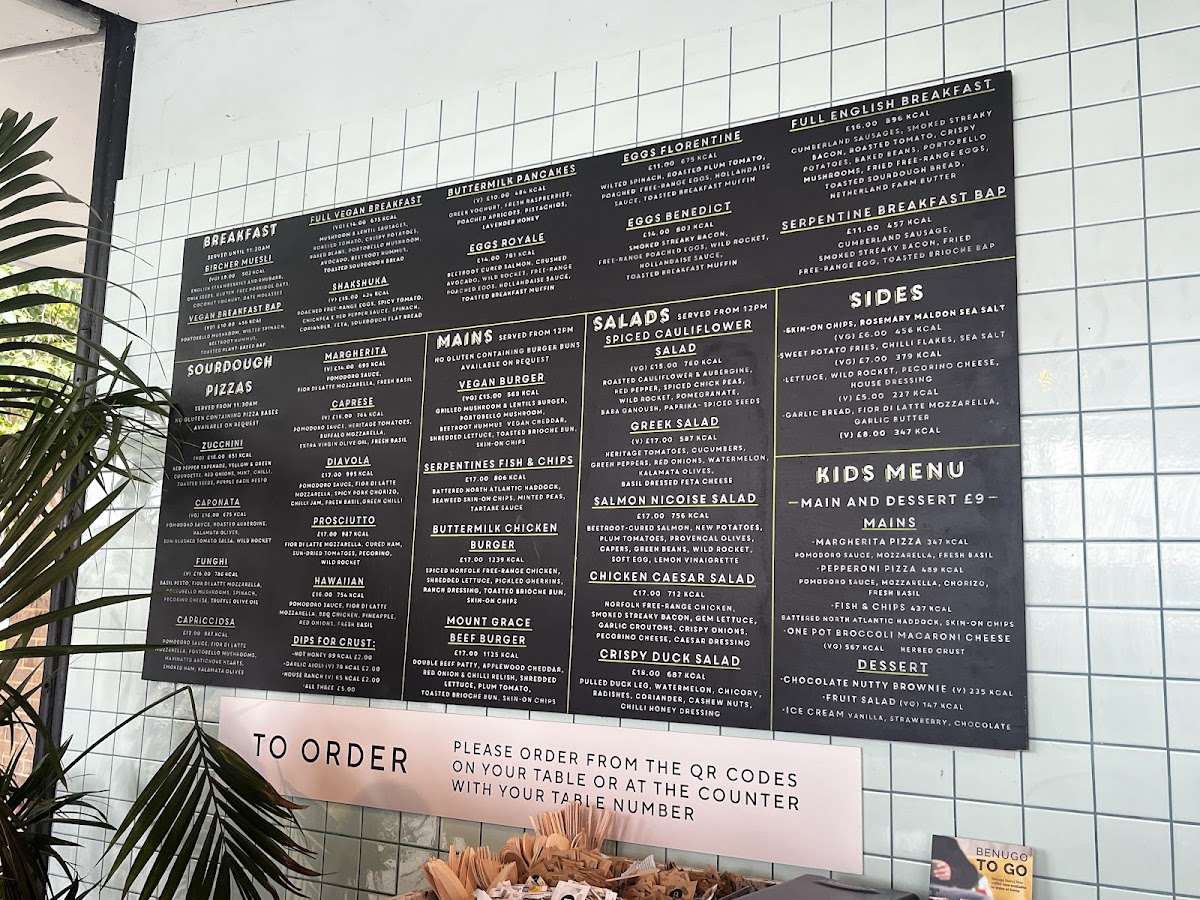 BREAKFAST
SERVED UNTIL 11:30AM
BIRCHER MUESLI
302 KCAL
ENGLISH STRAWBERRIES AND RHUBARB,
CHIA SEEDS, GLUTEN FREE PORRIDGE OATS,
COCONUT YOGHURT, DATE MOLASSES
VEGAN BREAKFAST BAP
(VG) £10.00 456 KCAL
PORTOBELLO MUSHROOM, WILTED SPINACH,
BEETROOT HUMMUS,
TOASTED PLANT-BASED BAP
FULL VEGAN BREAKFAST
(VG) £14.00 675 KCAL
MUSHROOM & LENTIL SAUSAGES,
ROASTED TOMATO, CRISPY POTATOES,
BAKED BEANS, PORTOBELLO MUSHROOM,
AVOCADO, BEETROOT HUMMUS,
TOASTED SOURDOUGH BREAD
SHAKSHUKA
(V) £15.00 424 KCAL
POACHED FREE-RANGE EGGS, SPICY TOMATO,
CHICKPEA & RED PEPPER SAUCE, SPINACH,
CORIANDER, FETA, SOURDOUGH FLAT BREAD
BUTTERMILK PANCAKES
(V) £10.00 484 KCAL
GREEK YOGHURT, FRESH RASPBERRIES,
POACHED APRICOTS, PISTACHIOS,
LAVENDER HONEY
EGGS ROYALE
£14.00 781 KCAL
BEETROOT CURED SALMON, CRUSHED
AVOCADO, WILD ROCKET, FREE-RANGE
POACHED EGGS, HOLLANDAISE SAUCE,
TOASTED BREAKFAST MUFFIN
EGGS FLORENTINE
£11.00 675 KCAL
WILTED SPINACH, ROASTED PLUM TOMATO,
POACHED FREE-RANGE EGGS, HOLLANDAISE
SAUCE, TOASTED BREAKFAST MUFFIN
EGGS BENEDICT
£14.00 803 KCAL
SMOKED STREAKY BACON,
FREE-RANGE POACHED EGGS, WILD ROCKET,
HOLLANDAISE SAUCE,
TOASTED BREAKFAST MUFFIN
FULL ENGLISH BREAKFAST
£16.00 896 KCAL
CUMBERLAND SAUSAGES, SMOKED STREAKY
BACON, ROASTED TOMATO, CRISPY
POTATOES, BAKED BEANS, PORTOBELLO
MUSHROOMS, FRIED FREE-RANGE EGGS,
TOASTED SOURDOUGH BREAD,
NETHERLAND FARM BUTTER
SERPENTINE BREAKFAST BAP
£11.00 457 KCAL
CUMBERLAND SAUSAGE,
SMOKED STREAKY BACON, FRIED
FREE-RANGE EGG, TOASTED BRIOCHE BAP
SOURDOUGH
PIZZAS
SERVED FROM 11.30AM
NO GLUTEN CONTAINING PIZZA BASES
AVAILABLE ON REQUEST
ZUCCHINI
(VG) £15.00 651 KCAL
RED PEPPER TAPENADE, YELLOW & GREEN
COURGETTE, RED ONIONS, MINT, CHILLI,
TOASTED SEEDS, PURPLE BASIL PESTO
CAPONATA
(VG) £16.00 675 KCAL
POMODORO SAUCE, ROASTED AUBERGINE,
KALAMATA OLIVES,
SUN-BLUSHED TOMATO SALSA, WILD ROCKET
FUNGHI
(V) £16.00 786 KCAL
BASIL PESTO, FIOR DI LATTE MOZZARELLA,
PORTOBELLO MUSHROOMS, SPINACH,
PECORINO CHEESE, TRUFFLE OLIVE OIL
CAPRICCIOSA
£17.00 KCAL
POMODORO SAUCE, FIOR DI LATTE
MOZZARELLA, PORTOBELLO MUSHROOMS,
MARINATED ARTICHOKE HEARTS,
SMOKED HAM, KALAMATA OLIVES
MARGHERITA
(V) £14.00 695 KCAL
POMODORO SAUCE,
FIOR DI LATTE MOZZARELLA, FRESH BASIL
CAPRESE
(V) £16.00 764 KCAL
POMODORO SAUCE, HERITAGE TOMATOES,
BUFFALO MOZZARELLA,
EXTRA VIRGIN OLIVE OIL, FRESH BASIL
DIAVOLA
£17.00 995 KCAL
POMODORO SAUCE, FIOR DI LATTE
MOZZARELLA, SPICY PORK CHORIZO,
CHILLI JAM, FRESH BASIL, GREEN CHILLI
PROSCIUTTO
£17.00 987 KCAL
FIOR DI LATTE MOZZARELLA, CURED HAM,
SUN-DRIED TOMATOES, PECORINO,
WILD ROCKET
HAWAIIAN
£16.00 754 KCAL
POMODORO SAUCE, FIOR DI LATTE
MOZZARELLA, BBQ CHICKEN, PINEAPPLE,
RED ONIONS, FRESH BASIL
DIPS FOR CRUST:
·HOT HONEY 89 KCAL £2.00
·GARLIC AIOLI (V) 78 KCAL £2.00
·HOUSE RANCH (V) 65 KCAL £2.00
·ALL THREE £5.00
MAINS SERVED FROM 12PM
NO GLUTEN CONTAINING BURGER BUNS
AVAILABLE ON REQUEST
VEGAN BURGER
(VG) £15.00 569 KCAL
GRILLED MUSHROOM & LENTILS BURGER,
PORTOBELLO MUSHROOM,
BEETROOT HUMMUS VEGAN CHEDDAR,
SHREDDED LETTUCE, TOASTED BRIOCHE BUN,
SKIN-ON CHIPS
SERPENTINES FISH & CHIPS
£17.00 806 KCAL
BATTERED NORTH ATLANTIC HADDOCK,
SEAWEED SKIN-ON CHIPS, MINTED PEAS,
TARTARE SAUCE
BUTTERMILK CHICKEN
BURGER
£17.00 1239 KCAL
SPICED NORFOLK FREE-RANGE CHICKEN,
SHREDDED LETTUCE, PICKLED GHERKINS,
RANCH DRESSING, TOASTED BRIOCHE BUN,
SKIN-ON CHIPS
MOUNT GRACE
BEEF BURGER
£17.00 1125 KCAL
DOUBLE BEEF PATTY, APPLEWOOD CHEDDAR,
RED ONION & CHILLI RELISH, SHREDDED
LETTUCE, PLUM TOMATO,
TOASTED BRIOCHE BUN, SKIN-ON CHIPS
SALADS SERVED FROM 12PM
SPICED CAULIFLOWER
SALAD
(VG) £15.00 760 KCAL
ROASTED CAULIFLOWER & AUBERGINE,
RED PEPPER, SPICED CHICK PEAS,
WILD ROCKET, POMEGRANATE,
BABA GANOUSH, PAPRIKA- SPICED SEEDS
GREEK SALAD
(V) £17.00 587 KCAL
HERITAGE TOMATOES, CUCUMBERS,
GREEN PEPPERS, RED ONIONS, WATERMELON,
KALAMATA OLIVES,
BASIL DRESSED FETA CHEESE
SALMON NICOISE SALAD
£17.00 756 KCAL
BEETROOT-CURED SALMON, NEW POTATOES,
PLUM TOMATOES, PROVENCAL OLIVES,
CAPERS, GREEN BEANS, WILD ROCKET,
SOFT EGG, LEMON VINAIGRETTE
CHICKEN CAESAR SALAD
£17.00 712 KCAL
NORFOLK FREE-RANGE CHICKEN,
SMOKED STREAKY BACON, GEM LETTUCE,
GARLIC CROUTONS, CRISPY ONIONS,
PECORINO CHEESE, CAESAR DRESSING
CRISPY DUCK SALAD
£18.00 687 KCAL
PULLED DUCK LEG, WATERMELON, CHICORY,
RADISHES, CORIANDER, CASHEW NUTS,
CHILLI HONEY DRESSING
SIDES
·SKIN-ON CHIPS, ROSEMARY MALDON SEA SALT
(VG) £6.00 456 KCAL
·SWEET POTATO FRIES, CHILLI FLAKES, SEA SALT
(VG) £7.00 379 KCAL
·LETTUCE, WILD ROCKET, PECORINO CHEESE,
HOUSE DRESSING
(V) £5.00 227 KCAL
·GARLIC BREAD, FIOR DI LATTE MOZZARELLA,
GARLIC BUTTER
(V) £8.00 347 KCAL
KIDS MENU
—MAIN AND DESSERT £9—
MAINS
·MARGHERITA PIZZA 347 KCAL
POMODORO SAUCE, MOZZARELLA, FRESH BASIL
·PEPPERONI PIZZA 489 KCAL
POMODORO SAUCE, MOZZARELLA, CHORIZO,
FRESH BASIL
·FISH & CHIPS 437 KCAL
BATTERED NORTH ATLANTIC HADDOCK, SKIN-ON CHIPS
·ONE POT BROCCOLI MACARONI CHEESE
(VG) 567 KCAL HERBED CRUST
DESSERT
·CHOCOLATE NUTTY BROWNIE (V) 235 KCAL
·FRUIT SALAD (VG) 147 KCAL
·ICE CREAM VANILLA, STRAWBERRY, CHOCOLATE
TO ORDER
PLEASE ORDER FROM THE QR CODES
ON YOUR TABLE OR AT THE COUNTER
WITH YOUR TABLE NUMBER
BENUGO
TO GO